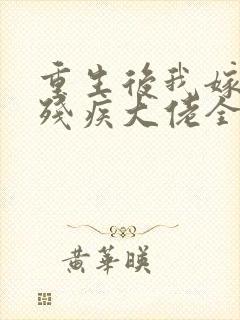 重生後我嫁
殘疾大佬全
黃華暎